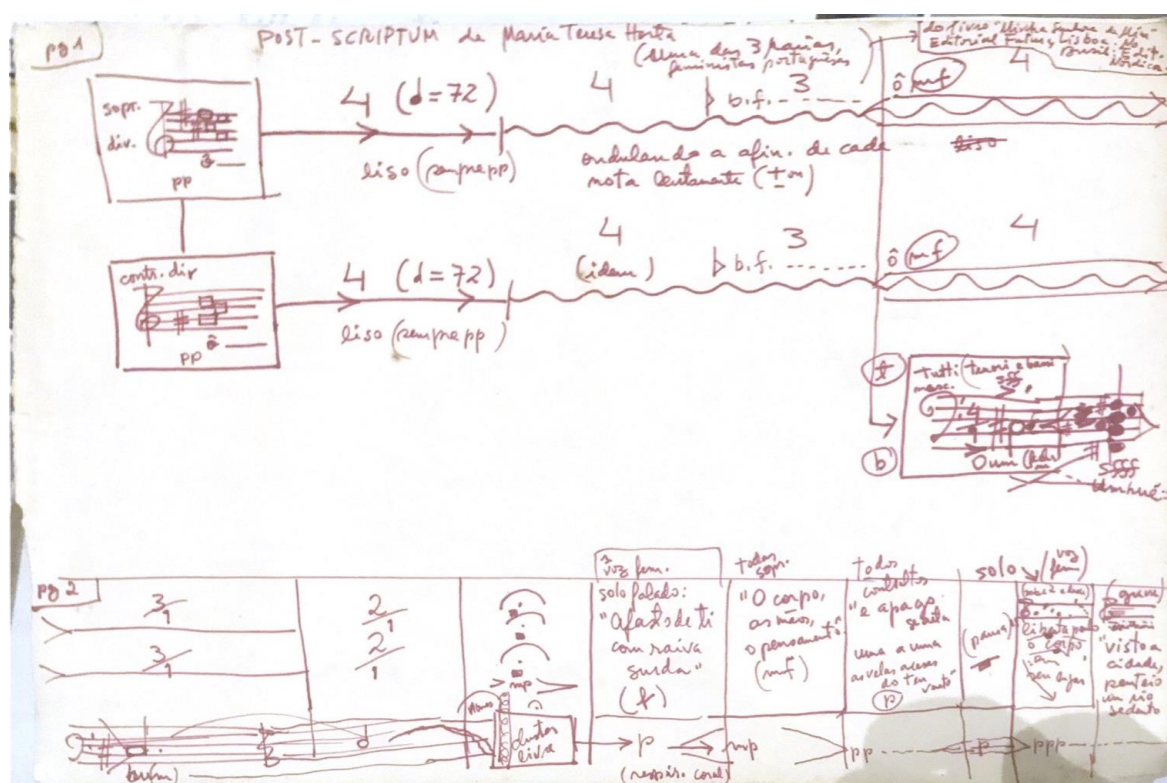 pg 1
POST-SCRIPTUM de Maria Teresa Horta
(Uma das 3 Marias,
feministas portuguesas)
do livro "Minha Senhora de Mim"
Editorial Futura, Lisboa. No
Brasil: Edit.
Nórdica.
sopr.
div.
pp
4 (d=72)
liso (sempre pp)
4
b.f. 3
ondulando a afin. de cada
nota lentamente (±)
ô mf
4
liso
contr. div
pp
4 (d=72)
liso (sempre pp)
4
(idem)
b.f. 3
ô mf
4
t
b
Tutti (tenori e bassi
masc.
sff
O um
sfff
pg 2
3/1
2/1
3/1
2/1
mp
cluster
livre
voz fem.
solo falado:
"Afasto de ti
com raiva
surda"
(f)
todas
sopr.
"O corpo,
as mãos,
o pensamento"
(mf)
todos
contraltos
"e apago
uma a uma
as velas acesas
do teu vento"
(p)
(pausa)
solo
voz
fem
liberta
o corpo
"visto a
cidade,
penteio
um rio
sedento
p
mp
pp
p
ppp
(respir. coral)